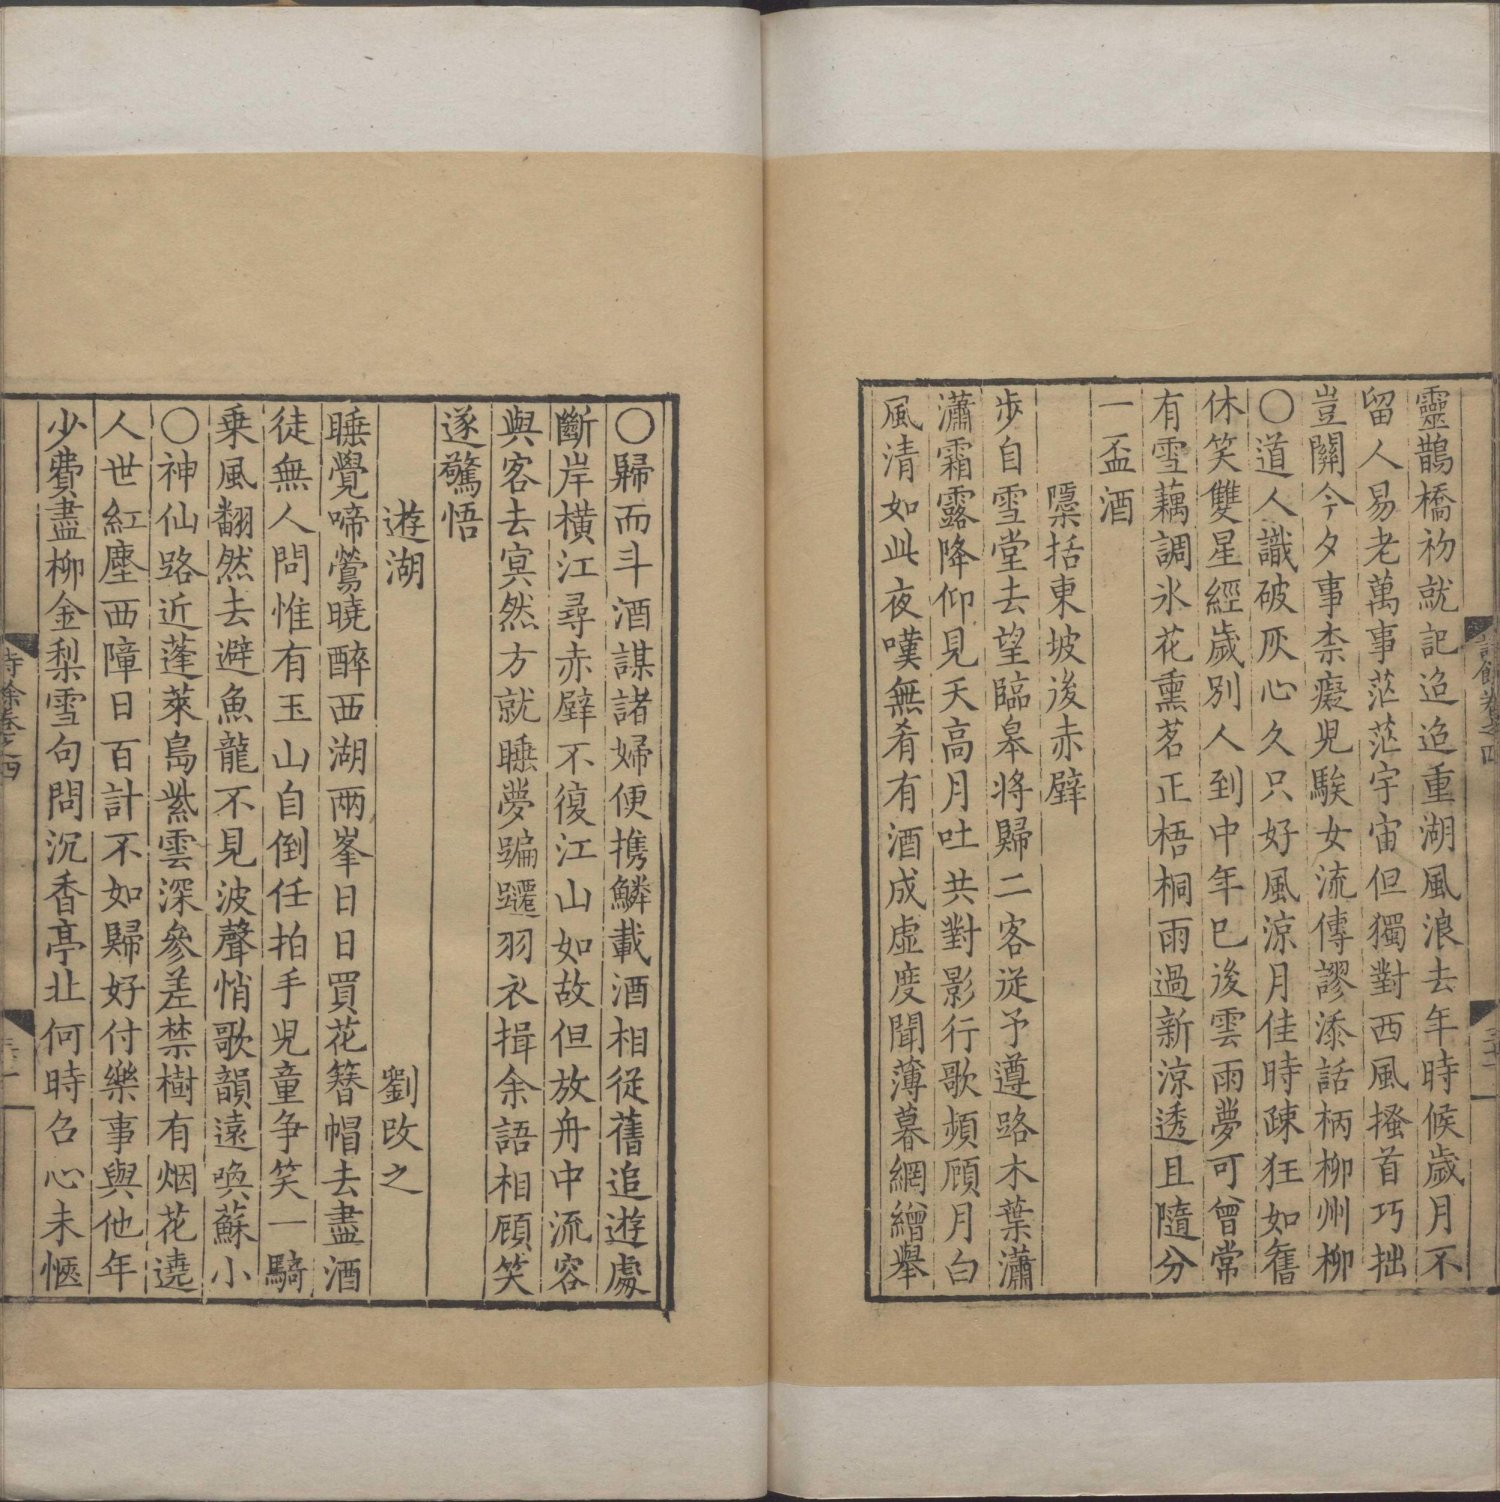 靈鵲橋初就記迢迢重湖風浪去年時候歲月不
留人易老萬事茫茫宇宙但獨對西風搔首巧拙
豈關今夕事柰癡兒騃女流傳謬添話柄柳州柳
〇道人識破灰心久只好風涼月佳時疎狂如舊
休笑雙星經歲別人到中年已後雲雨夢可曾常
有雪藕調氷花熏茗正梧桐雨過新涼透且隨分
一盃酒
隱括東坡後赤壁
歩自雪堂去望臨皋将歸二客從予遵路木葉瀟
瀟霜露降仰見天高月吐共對影行歌頻顧月白
風清如此夜嘆無肴有酒成虛度聞薄暮網繒舉
〇歸而斗酒謀諸婦便携鱗載酒相從舊追遊處
斷岸横江尋赤壁不復江山如故但放舟中流容
與客去㝠然方就睡夢蹁躚羽衣揖余語相顧笑
遂驚悟
遊湖 劉改之
睡覺啼鶯曉醉西湖兩峯日日買花簪帽去盡酒
徒無人問惟有玉山自倒任拍手兒童争笑一騎
乗風翻然去避魚龍不見波聲悄歌韻遠喚蘇小
〇神仙路近蓬萊島紫雲深參差禁樹有烟花遶
人世紅塵西障日百計不如歸好付樂事與他年
少費盡柳金梨雪句問沉香亭北何時召心未愜